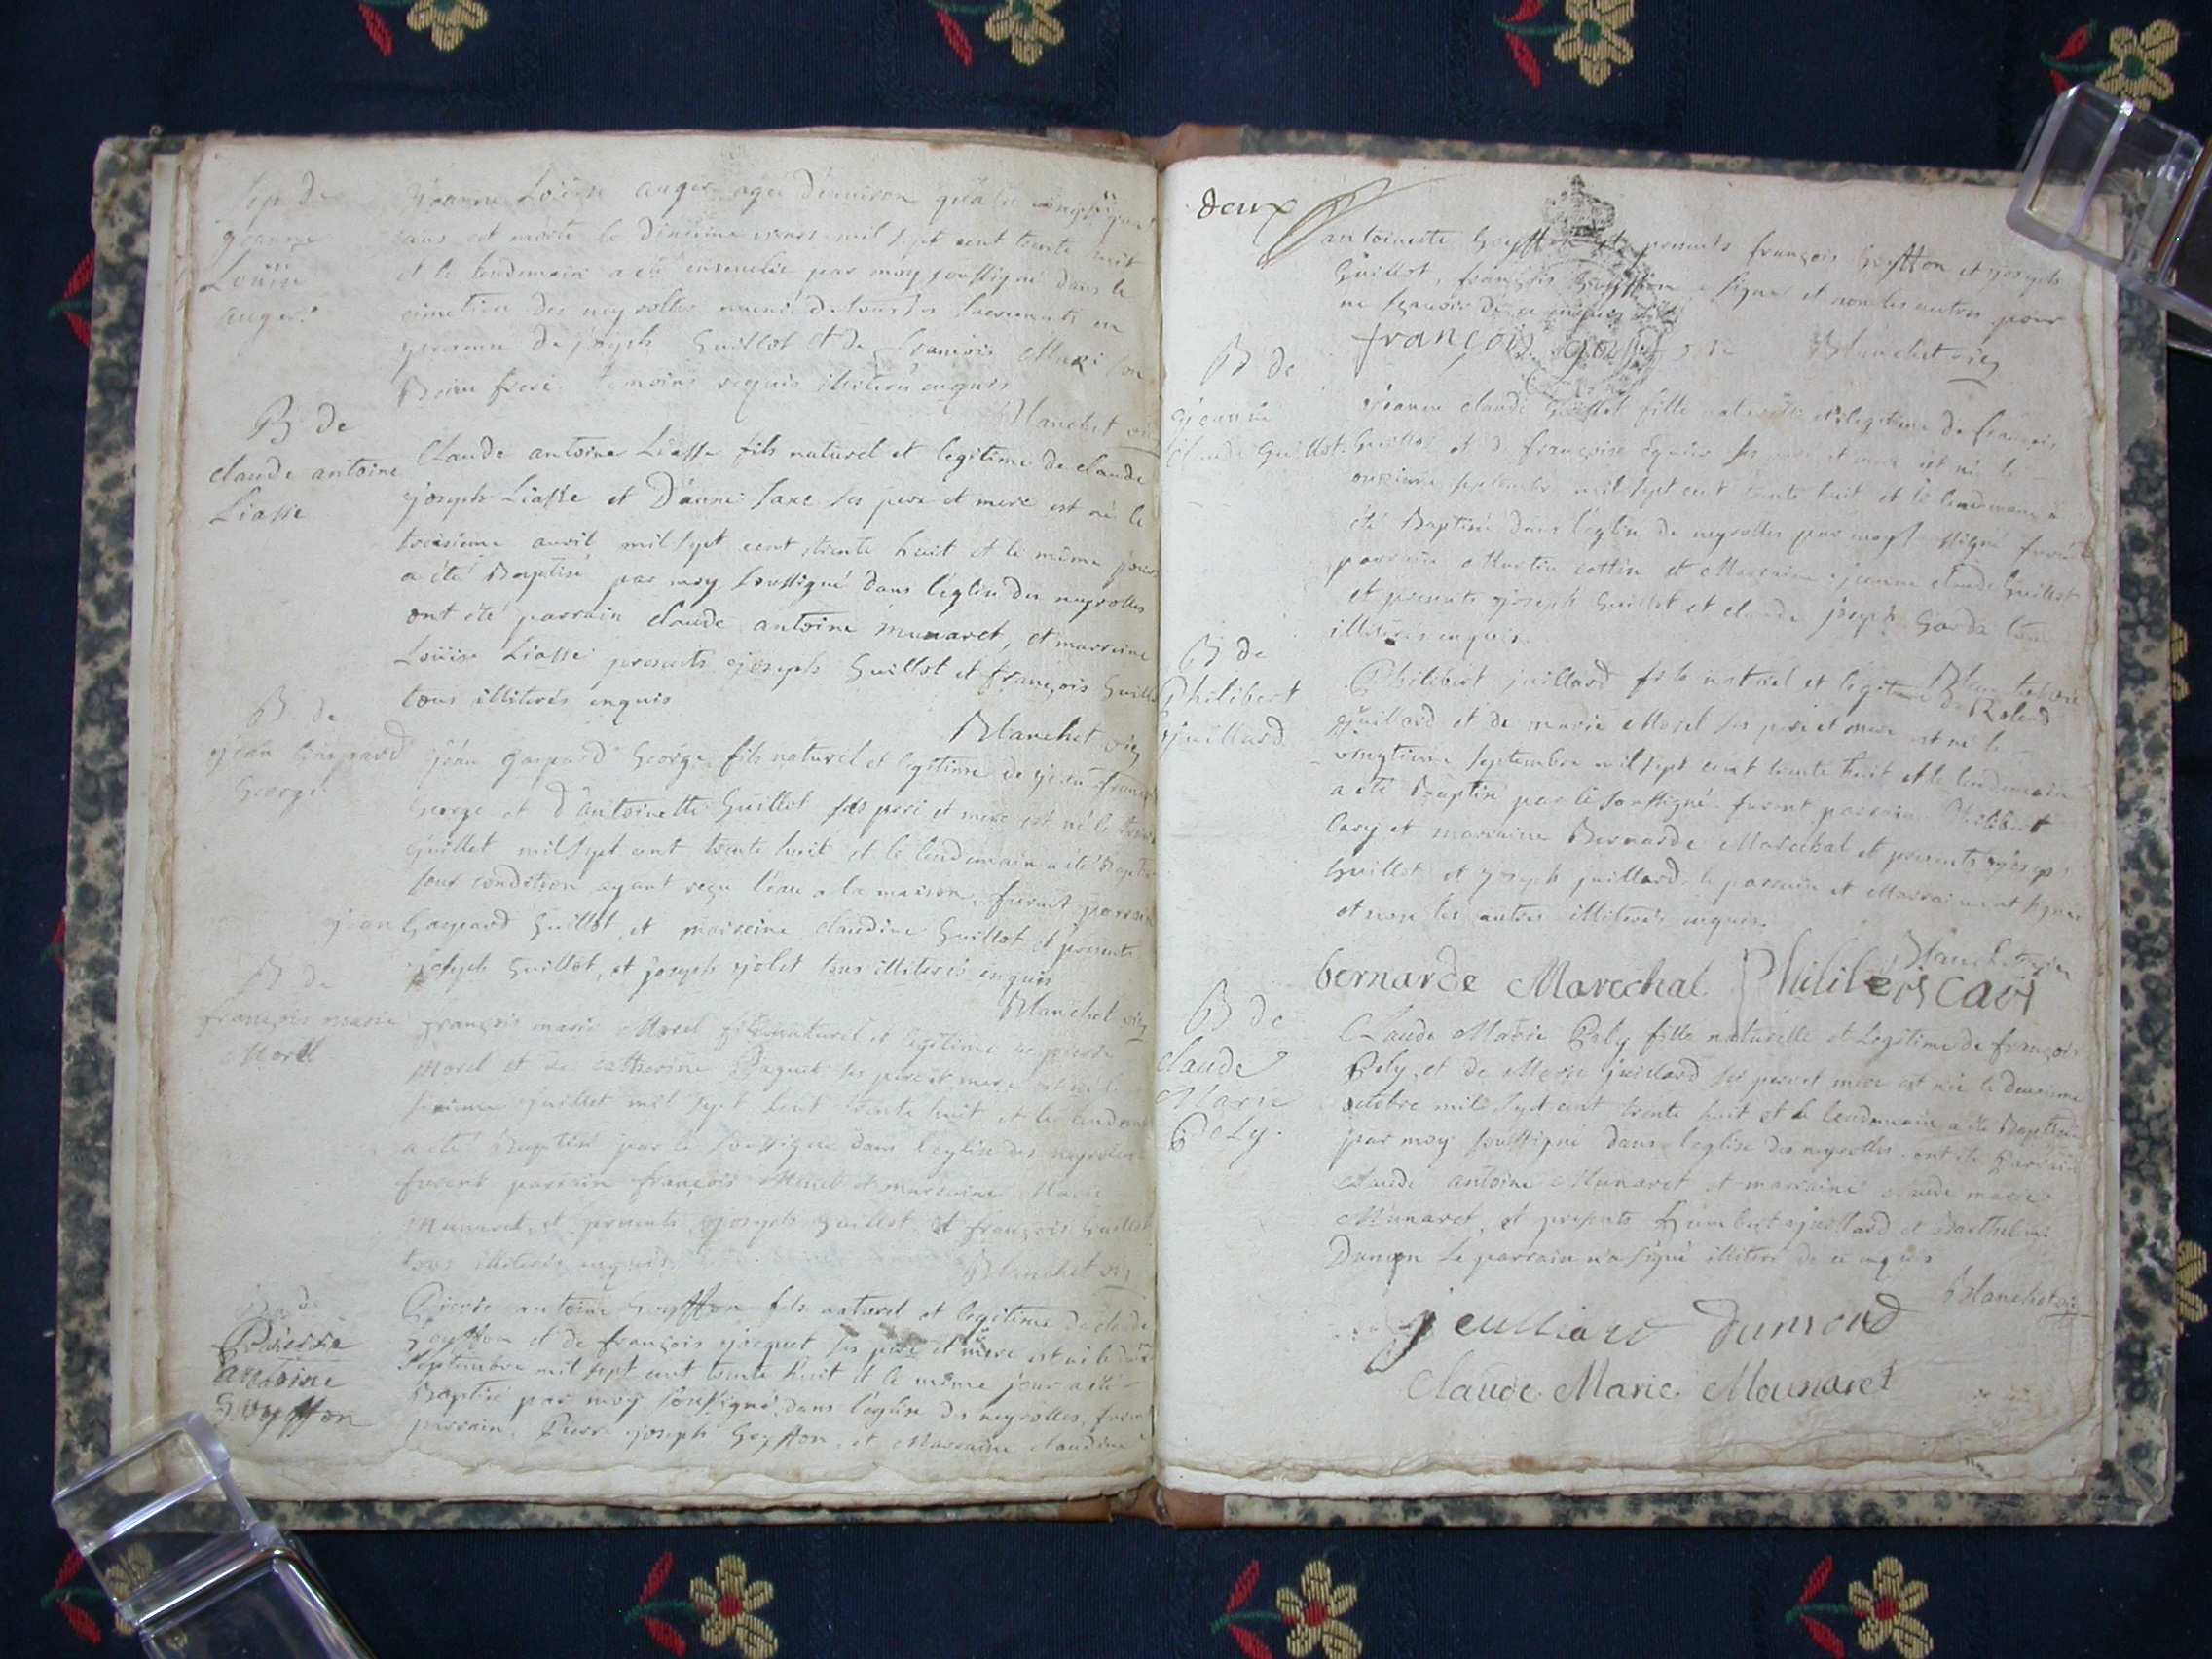 Sep de
jeanne
Loüise
auger
jeanne Loüise auger agée d'environ quatre vingt
ans est morte le dixieme mars mil sept cent trente huit
et le lendemain a eté ensevelie par moy soussigné dans le
cimetiere des neyrolles munie de tous les sacrements en
presence de joseph Guillot et de françois son
Beau frere temoins requis illiterés enquis
Blanchet vic
B de
claude antoine
Liasse
Claude antoine Liasse fils naturel et legitime de claude
joseph Liasse et D'anne saxe ses pere et mere est né le
troisieme avril mil sept cent trente huit et le même jour
a été Baptisé par moy soussigné dans l'église des neyrolles
ont été parrain claude antoine munaret, et marraine
Loüise Liasse presents joseph Guillot et françois Guillot
tous illiterés enquis
Blanchet vic
B de
jean Gaspard
George
jean gaspard George fils naturel et legitime de jean françois
George et d'antoinette Guillot ses pere et mere est né le
juillet mil sept cent trente huit et le lendemain a été Baptisé
sous condition ayant reçu l'eau a la maison, furent parrain
jean Gaspard Guillot, et marreine claudine Guillot et presents
joseph Guillot, et joseph jolet tous illiterés enquis
Blanchet vic
B de
françois marie
Morel
françois marie Morel fils naturel et legitime de pierre
Morel et de catherine ses pere et mere est né le
juillet mil sept cent trente huit et le lendemain
a eté Baptisé par le soussigné dans l'eglise des neyrolles
furent parrain françois Morel et marraine Marie
Munaret, et presents joseph Guillot et françois Guillot
tous illiterés enquis
Blanchet vic
B de
Pierre
antoine
Goyffon
Pierre antoine Goyffon fils naturel et legitime de claude
Goyffon et de françoise jocquet ses pere et mere est né le
septembre mil sept cent trente huit et le même jour a été
Baptisé par moy soussigné dans l'église des neyrolles, furent
parrain Pierre joseph Goyffon et Marraine claudine
deux
antoinette Goyffon et presents françois Goyffon et joseph
Guillot, françois Goyffon a signé et non les autres pour
ne sçavoir de ce enquis
françois goyffon Blanchet vic
B de
jeanne
Claude Guillot
jeanne claude Guillot fille naturelle et legitime de françois
Guillot et d françoise ses pere et mere est née le
onzieme septembre mil sept cent trente huit et le lendemain a
été Baptisée dans l'église de neyrolles par moy soussigné furent
parrain Martin cottin et Marraine jeanne claude Guillot
et presents joseph Guillot et claude joseph Garda tous
illiterés enquis
Blanchet vic
B de
Philibert
juillard
Philibert juillard fils naturel et legitime de Roland
juillard et de marie Morel ses pere et mere est né le
vingtieme septembre mil sept cent trente huit et le lendemain
a été Baptisé par le soussigné furent parrain Philibert
Cavy et marraine Bernarde Marechal et presents joseph
Guillot et joseph juillard le parrain et Marraine ont signés
et non les autres illiterés enquis
Blanchet vic
bernarde Marechal Philibert cavi
B de
Claude
Marie
Poly
Claude Marie Poly fille naturelle et Legitime de françois
Poly, et de Marie juillard ses pere et mere est née le deuxieme
octobre mil sept cent trente huit et le lendemain a été Baptisée
par moy soussigné dans l'eglise des neyrolles ont été Parrain
claude antoine Munaret et marraine claude marie
Munaret, et presents Humbert juillard et Barthelemi
Dumon le parrain n'a signé illiteré de ce enquis
Blanchet vic
j eulliard Dumond
Claude Marie Mounaret